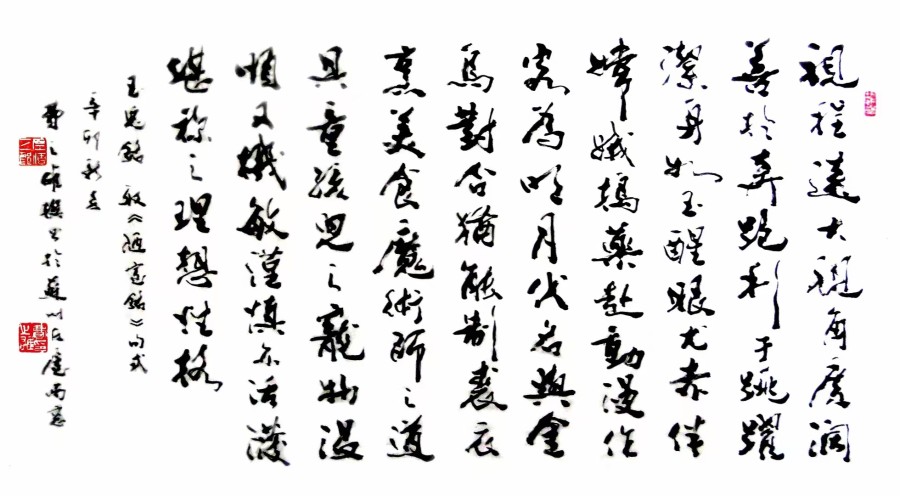 視程遠大視角廣闊
善於奔跑利于跳躍
潔身如玉醒眼尤赤伴
嫦娥搗藥赴動漫作
客為明月代名與金
烏對合猶能制裘衣
烹美食魔術師之道
具童孩兒之寵物溫
順又機敏謹慎亦活潑
堪稱之理想性格
玉兔銘 效《陋室銘》句式
辛卯新春
費之雄撰書於蘇州左廬南窗